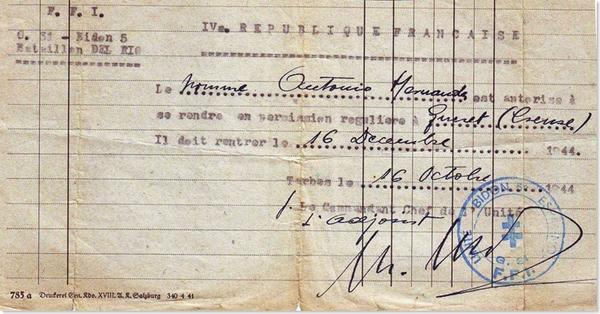 F. F. I.
G. 31 - Biden 5
Bataillon DEL RIO
IVe. REPUBLIQUE FRANCAISE
Le nommé Antonio Hernando est autorise à
se rendre en permission reguliere à Gueret (Creuse)
Il doit rentrer le 16 Decembre 1944.
Tarbes le 16 Octobre 1944
Le Commandant Chef de l'Unité
L'adjoint
F.F.I.
785 a Druckerei Gen. Kdo. XVIII. A. K. Salzburg 340 4 41